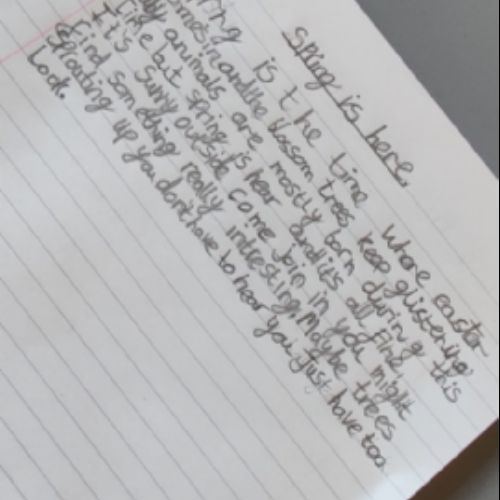 Spring is here.
ring is the time where easter
omes in and the blossom trees keep glistening,
by animals are mostly born during this
time but spring is hear and it's all fine
It's sunny outside come join in you might
find something really intresting, Maybe trees
sprouting up you don't have to hear you just have too
Look.